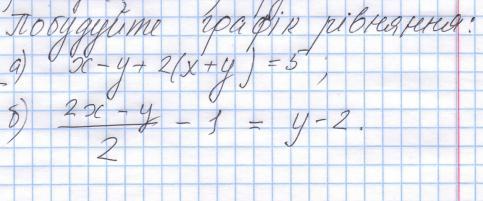 Побудуйте графік рівняння:
а) x - y + 2(x + y) = 5;
б) \frac{2x - y}{2} - 1 = y - 2.